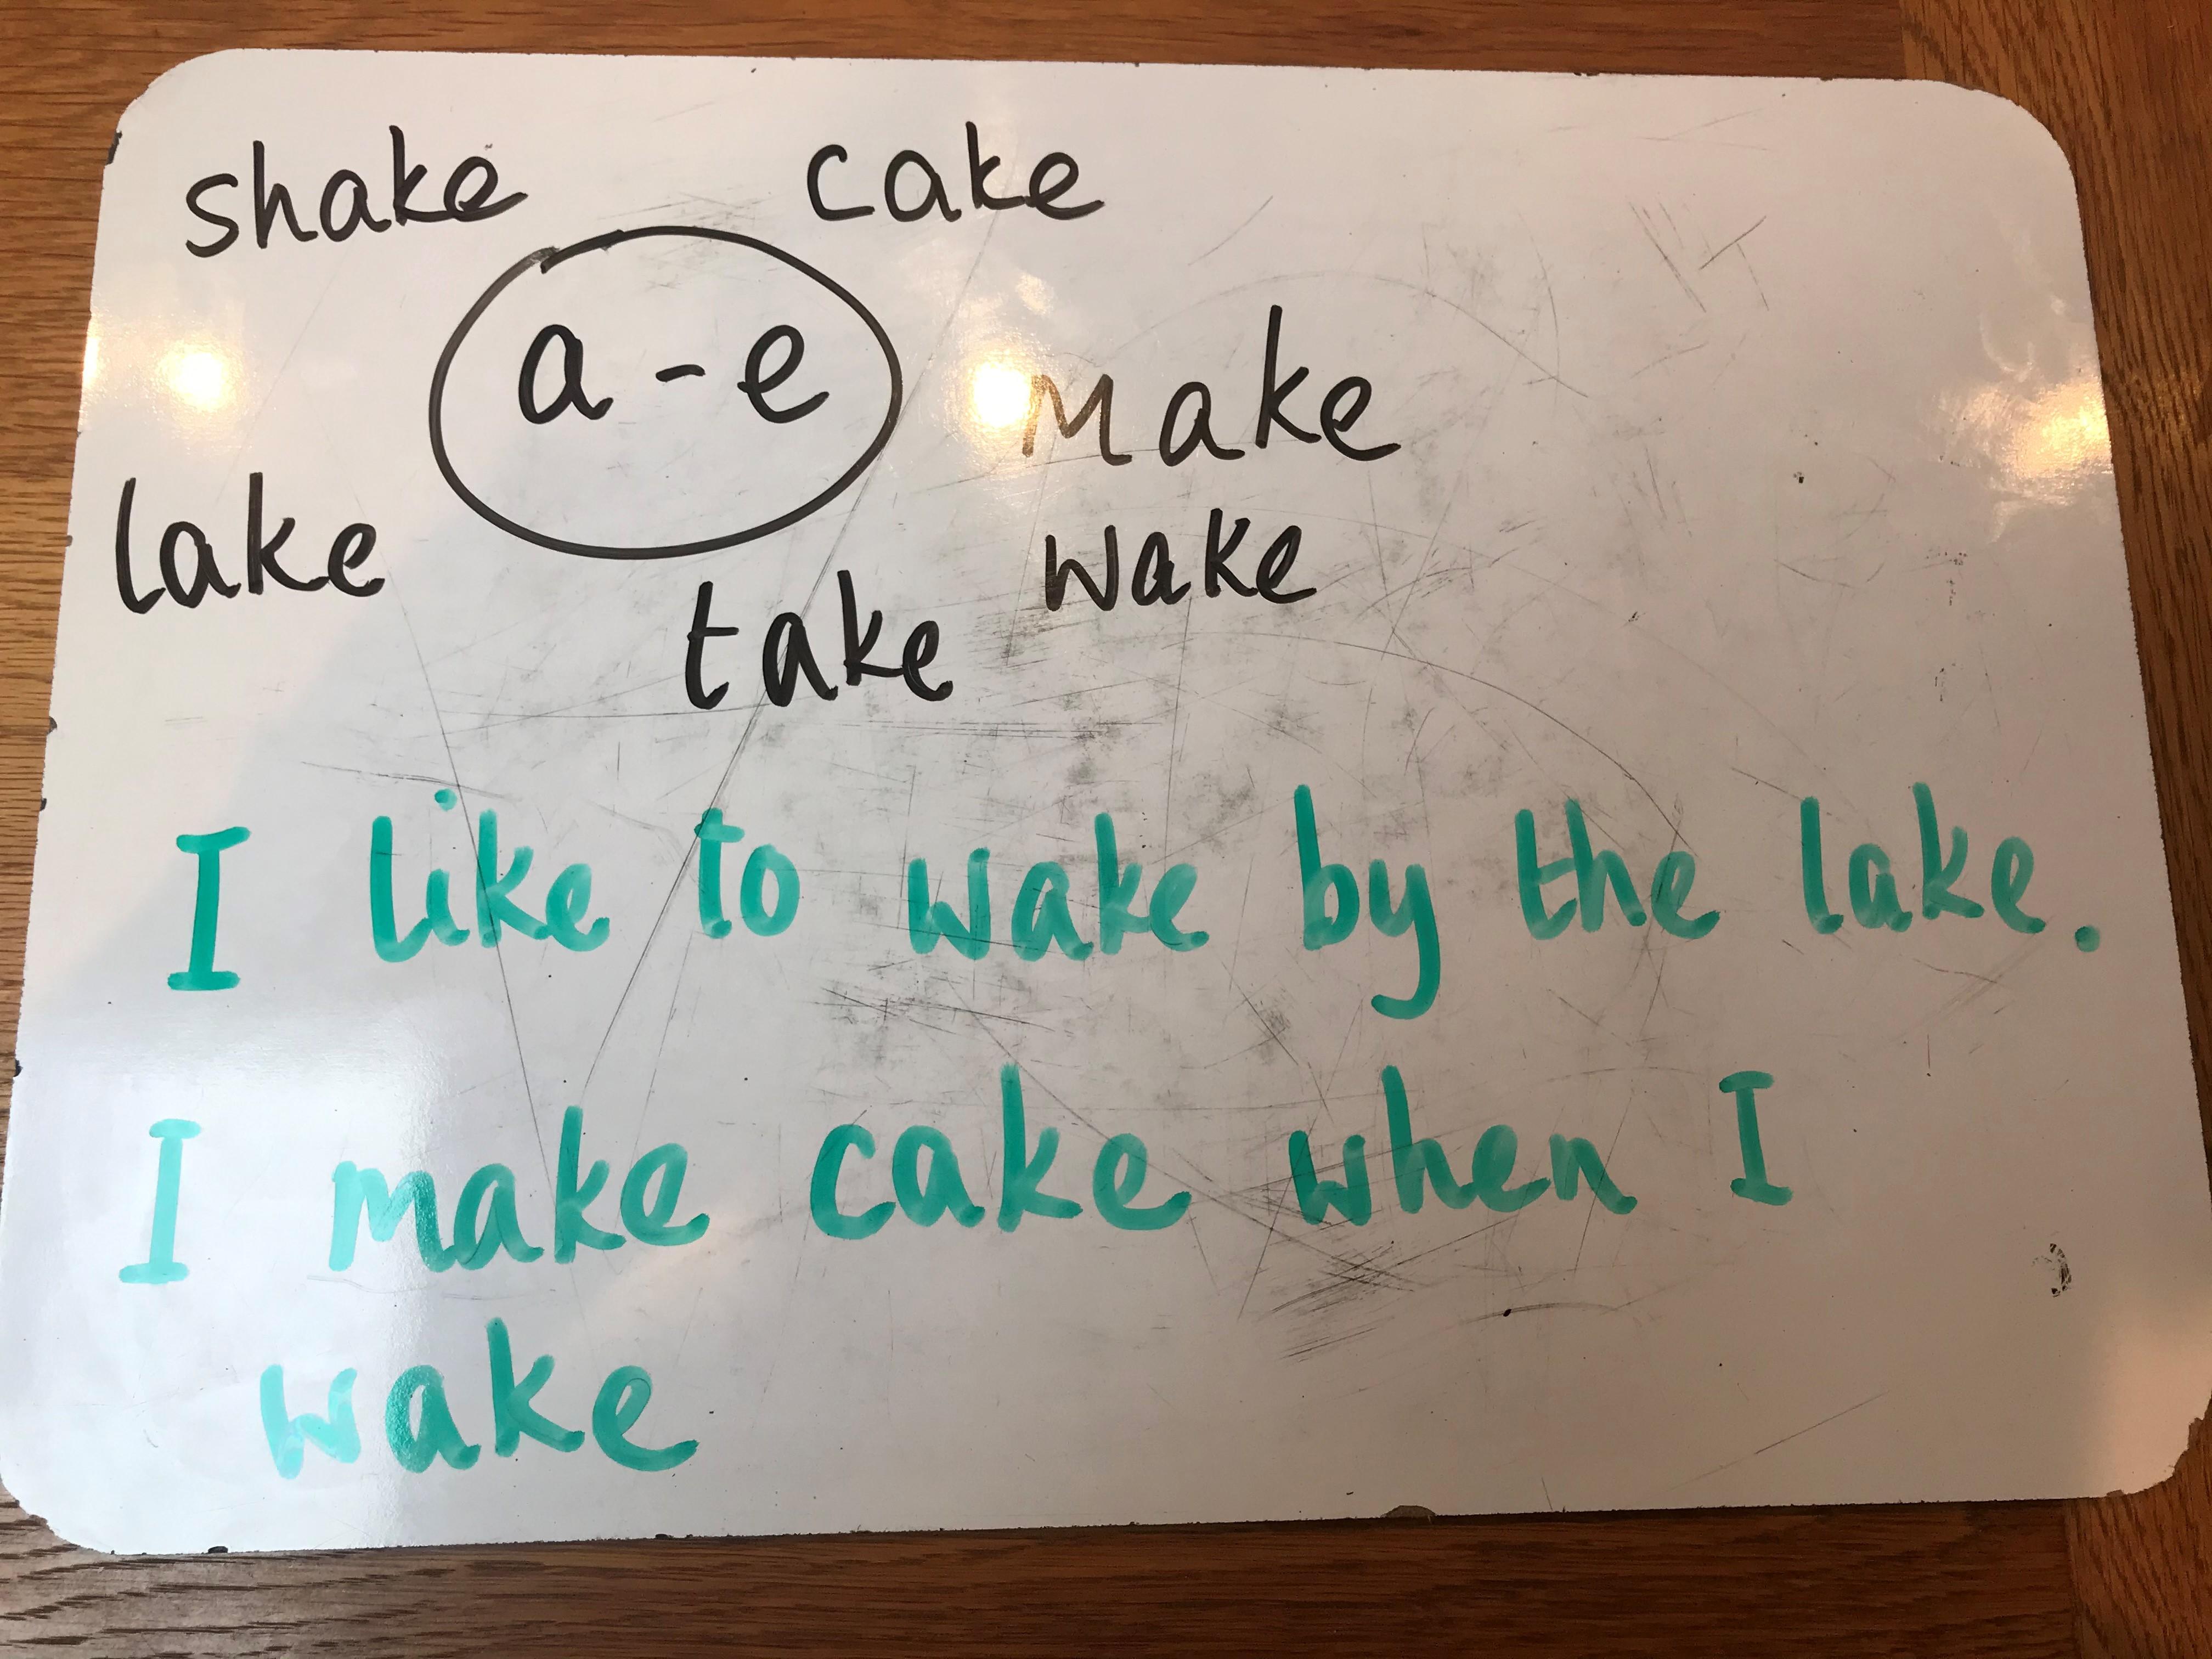 shake cake
a-e
make
lake
wake
take
I like to wake by the lake.
I make cake when I
wake